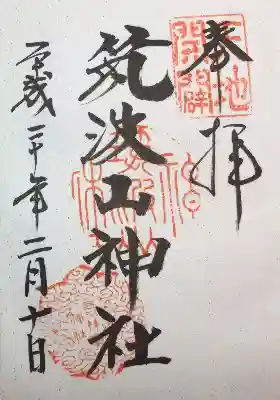 奉拝
天地開闢
筑波山神社
平成二十年二月十日